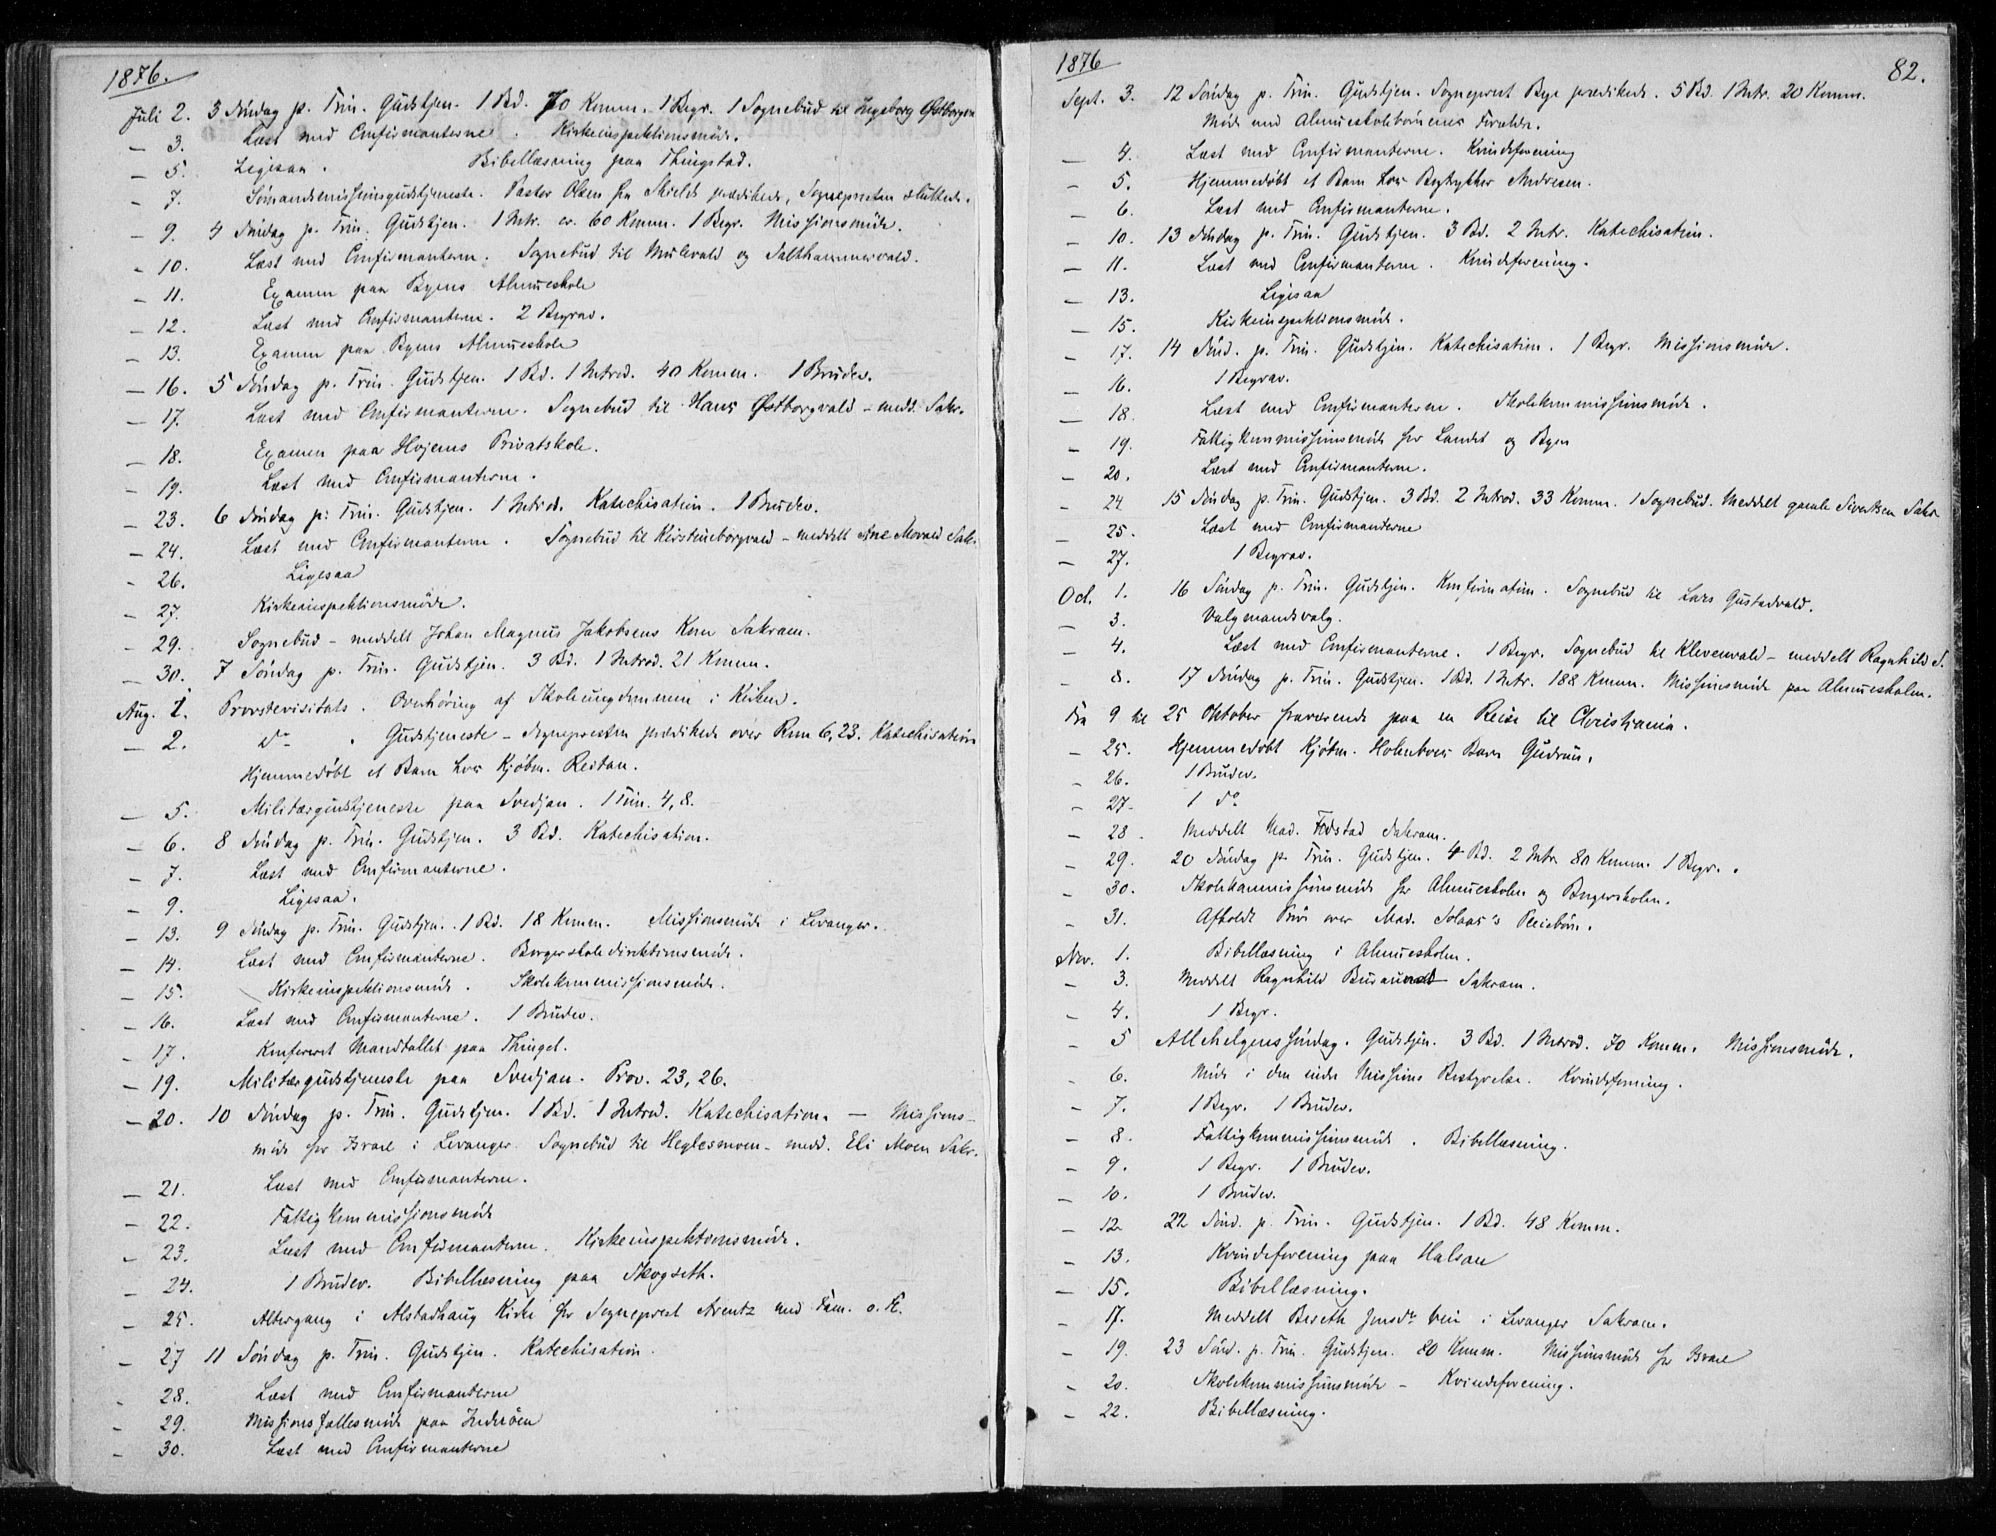 1876.
Juli 2. 3 Söndag p. Trin. Gudstjen. 1 Bd. 70 Komm. 1 Begr. 1 Sognebud til Ingeborg Østborgen
— 3. Læst med Confirmanterne. Kirkeinspektionsmöde.
— 5. Ligesaa. Bibellæsning paa Thingstad.
— 7. Sömandsmissionsgudstjeneste. Pastor Olsen fra Shields prædikede, Sognepresten sluttede.
— 9. 4 Söndag p. Trin. Gudstjen. 1 Intr. 60 Komm. 1 Begr. Missionsmöde.
— 10. Læst med Confirmanterne. Sognebud til Mulevald og Salthammervald.
— 11. Examen paa Byens Almueskole
— 12. Læst med Confirmanterne. 2 Begrav.
— 13. Examen paa Byens Almueskole
— 16. 5 Söndag p. Trin. Gudstjen. 1 Bd. 1 Introd. 40 Komm. 1 Brudev.
— 17. Læst med Confirmanterne. Sognebud til Hans Østborgvald - medd. Sakr.
— 18. Examen paa Hojems Privatskole.
— 19. Læst med Confirmanterne.
— 23. 6 Söndag p. Trin. Gudstjen. 1 Introd. Katechisation. 1 Brudev.
— 24. Læst med Confirmanterne. Sognebud til Kirstineborgvald - meddelt Ane Movald Sak.
- 26. Ligesaa
- 27. Kirkeinspektionsmöde.
- 29. Sognebud - meddelt Johan Magnus Jakobsens Kone Sakram.
— 30. 7 Söndag p. Trin. Gudstjen. 3 Bd. 1 Introd. 21 Komm.
Aug. 1. Provstevisitats. Overhöring af Skoleungdommen i Kirken.
— 2. do. Gudstjeneste - Sognepresten prædikede over Rom 6,23. Katechisation
Hjemmedöbt et Barn hos Kjöbm. Reitan.
— 5. Militærgudstjeneste paa Svedjan. 1 Tim. 4,8.
— 6. 8 Söndag p. Trin. Gudstjen. 3 Bd. Katechisation.
— 7. Læst med Confirmanterne.
— 9. Ligesaa.
— 13. 9 Söndag p. Trin. Gudstjen. 1 Bd. 18 Komm. Missionsmöde i Levanger.
— 14. Læst med Confirmanterne. Borgerskoledirektionsmöde.
— 15. Kirkeinspektionsmöde. Skolekommissionsmöde.
— 16. Læst med Confirmanterne. 1 Brudev.
— 17. Konfereret Mandtallet paa Thinget.
— 19. Militærgudstjeneste paa Svedjan. Prov. 23, 26.
— 20. 10 Söndag p. Trin. Gudstjen. 1 Bd. 1 Introd. Katechisation. — Missions-
möde for Israel i Levanger. Sognebud til Heglesmoen - medd. Eli Moen Sakr.
— 21. Læst med Confirmanterne.
— 22. Fattigkommissionsmöde
— 23. Læst med Confirmanterne. Kirkeinspektionsmöde.
— 24. 1 Brudev. Bibellæsning paa Skogseth.
— 25. Altergang i Alstadhaug Kirke for Sogneprest Arentz med Fam. o. Fl.
— 27 11 Söndag p. Trin. Gudstjen. Katechisation.
- 28. Læst med Confirmanterne
- 29. Missionsfællesmöde paa Inderöen
- 30. Læst med Confirmanterne
1876
82.
Sept. 3. 12 Söndag p. Trin. Gudstjen. Sogneprest Bye prædikede. 5 Bd. 1 Intr. 20 Komm.
Möde med Almueskolebörnenes Forældre.
— 4. Læst med Confirmanterne. Kvindeforening
- 5. Hjemmedöbt et Barn hos Bogtrykker Andresen.
- 6. Læst med Confirmanterne.
- 10. 13 Söndag p. Trin. Gudstjen. 3 Bd. 2 Intr. Katechisation.
— 11. Læst med Confirmanterne. Kvindeforening.
— 13. Ligesaa
— 15. Kirkeinspektionsmöde.
— 17. 14 Sönd. p. Trin. Gudstjen. Katechisation. 1 Begr. Missionsmöde.
— 16. 1 Begrav.
— 18. Læst med Confirmanterne. Skolekommissionsmöde.
— 19. Fattigkommissionsmöde for Landet og Byen
— 20. Læst med Confirmanterne.
- 24 15 Söndag p. Trin. Gudstjen. 3 Bd. 2 Introd. 33 Komm. 1 Sognebud. Meddelt gamle Sivertsen Sakr.
- 25. Læst med Confirmanterne
— 27. 1 Begrav.
Oct. 1. 16 Söndag p. Trin. Gudstjen. Konfirmation. Sognebud til Lars Gustadvald.
— 3. Valgmandsvalg.
— 4. Læst med Confirmanterne. 1 Begr. Sognebud til Klevenvald - meddelt Ragnhild S.
- 8. 17 Söndag p. Trin. Gudstjen. 1 Bd. 1 Intr. 188 Komm. Missionsmöde paa Almueskolen.
Fra 9 til 25 Oktober fraværende paa en Reise til Christiania.
— 25. Hjemmedöbt Kjöbm. Holmboes Barn Gudrun.
- 26. 1 Brudev.
- 27. 1 do
- 28. Meddelt Mad. Fidstad Sakram.
— 29. 20 Söndag p. Trin. Gudstjen. 4 Bd. 2 Intr. 80 Komm. 1 Begr.
- 30. Skolekommissionsmöde for Almueskolen og Borgerskolen.
— 31. Afholdt Pröve over Mad. Solaas's Pleiebörn.
Nov. 1. Bibellæsning i Almueskolen.
- 3. Meddelt Ragnhild Sakram.
- 4. 1 Begr.
— 5 Allehelgenssöndag. Gudstjen. 3 Bd. 1 Introd. 70 Komm. Missionsmöde.
- 6. Möde i den indre Missions Bestyrelse. Kvindeforening.
- 7. 1 Begr. 1 Brudev.
— 8. Fattigkommissionsmöde. Bibellæsning.
— 9. 1 Begr. 1 Brudev.
— 10. 1 Brudev.
— 12 22 Sönd. p. Trin. Gudstjen. 1 Bd. 48 Komm.
— 13. Kvindeforening paa Halsan
— 15. Bibellæsning.
- 17. Meddelt Bereth Jensdr. i Levanger Sakram.
- 19. 23 Sönd. p. Trin. Gudstjen. 20 Komm. Missionsmöde for Israel
- 20. Skolekommissionsmöde - Kvindeforening.
- 22. Bibellæsning.